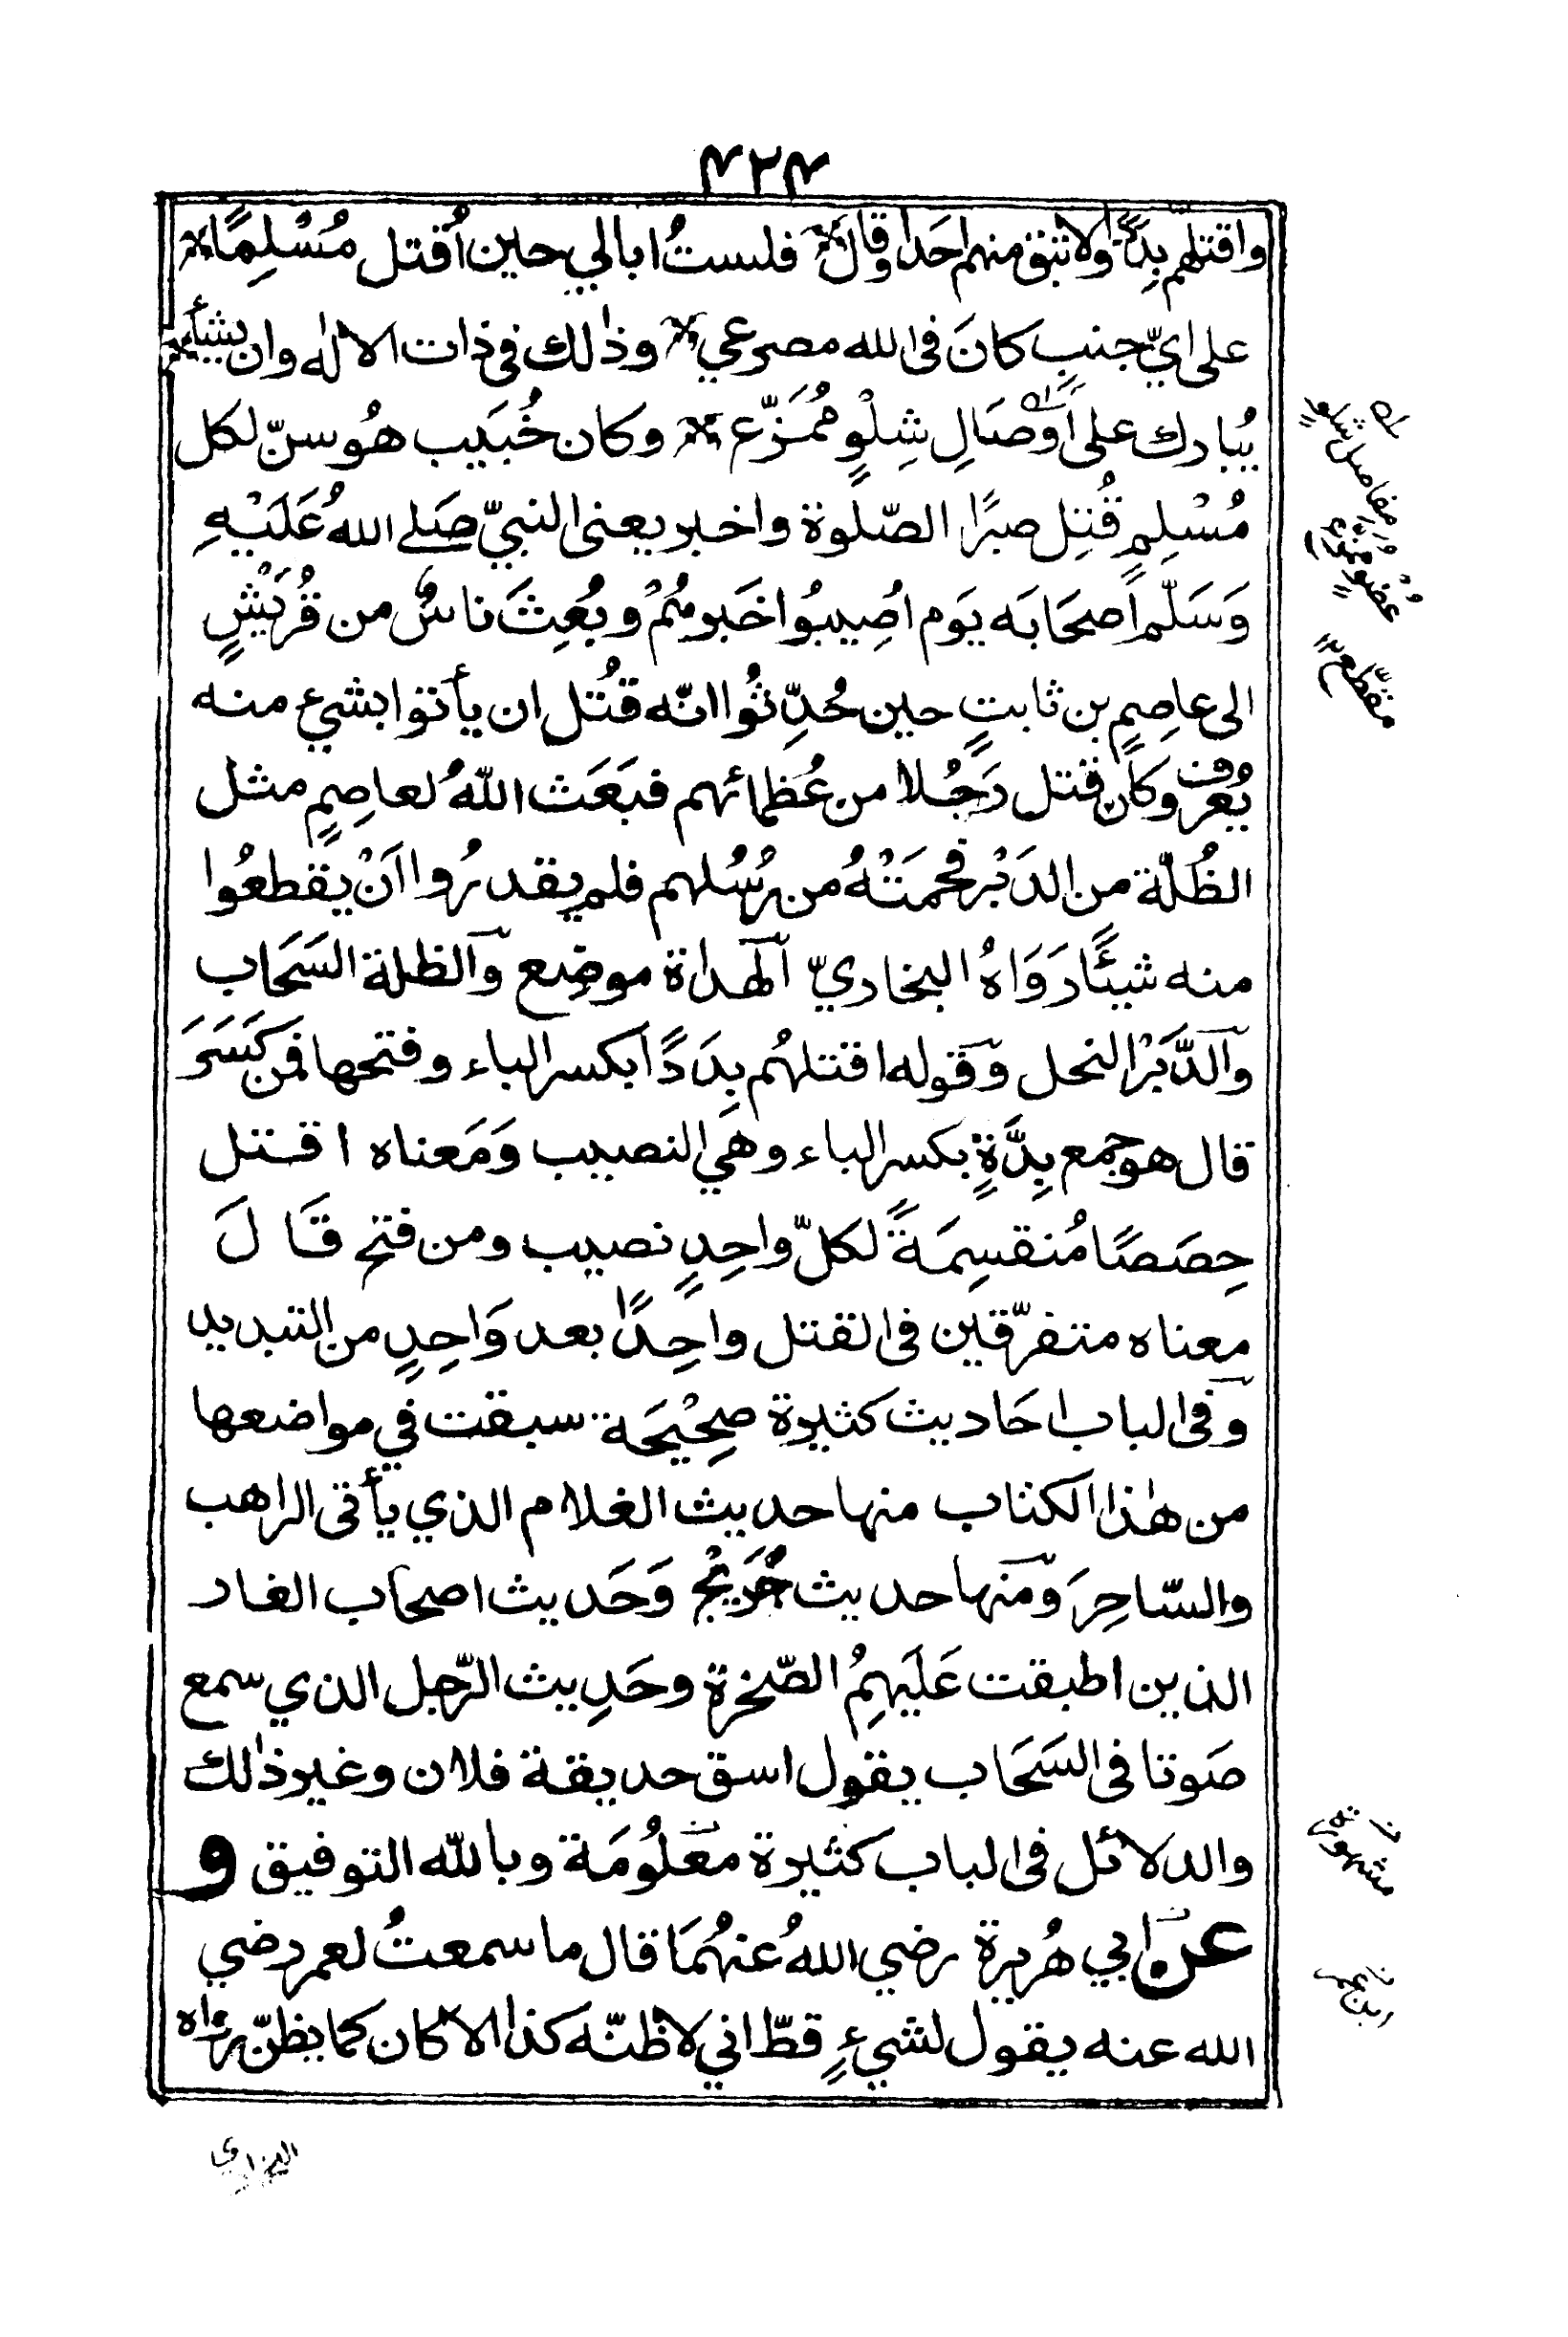 ۴۲۴
واقتلهم بِدَدًا ولا تبق منهم احَدًا وقال فلستُ ابالي حين اُقتل مُسْلِمًا
على ايّ جنبٍ كانَ فى الله مصرعي وذٰلك فى ذات الالٰه وان يشأ
يُبارك على اَوْصَالِ شِلْوٍ مُمَزّع وكان خُبَيب هُو سنّ لكل
مُسْلِمٍ قُتِل صبرًا الصّلوة واخبر يعنى النبيّ صَلے اللهُ عَلَيْهِ
وَسَلّم اَصحَابَه يَوم اُصِيبُوا خَبرهُمْ وبُعِثَ ناسٌ من قُرَيْشٍ
الى عاصِمٍ بن ثابتٍ حين حُدِّثُوا انّه قُتل ان يأتوا بشيء منه
يُعرف وكان قتل رَجُلا من عُظمائهم فبَعَث اللّهُ لعاصِمٍ مثل
الظُلّة من الدَبْر فحمَتْهُ من رُسُلهم فلم يقدرُوا اَنْ يقطعُوا
منه شيئًا رَوَاهُ البخاريّ الهداة موضع والظلة السَحَاب
والدَّبْر النحل وقوله اقتلهُم بِدَدًا بكسر الباء وفتحها فمن كَسَرَ
قال هو جمع بِدَّةٍ بكسر الباء وهي النصيب وَمَعناه اقتل
حِصَصًا مُنقسِمَةً لكلّ واحِدٍ نصيب ومن فتح قَالَ
معناه متفرّقين فى القتل واحِدًا بعد وَاحِدٍ من التبديد
وفى الباب احَاديث كثيرة صحِيْحَة سبقت في مواضعها
من هٰذا الكتاب منها حديث الغلام الذي يأتى الراهب
والسّاحِرَ ومنها حديث جُرَيْج وَحَديث اصحاب الغار
الذين اطبقت عَلَيهِمُ الصّخرة وحَدِيث الرّجل الذي سمع
صَوتا فى السَحَاب يقول اسق حديقة فلان وغير ذٰلك
والدلائل فى الباب كثيرة مَعلُومَة وبالله التوفيق و
عن ابي هُريرة رضي اللهُ عنهُمَا قال ما سمعتُ لعمر رضي
الله عنه يقول لشيءٍ قطّ اني لاظنّه كذا الا كان كما يظنّ رواه
البخاري
مفاصل شلوٍ
عُضُوٍ
مقطّعٍ
ن مشهورة
ن ابن عمر